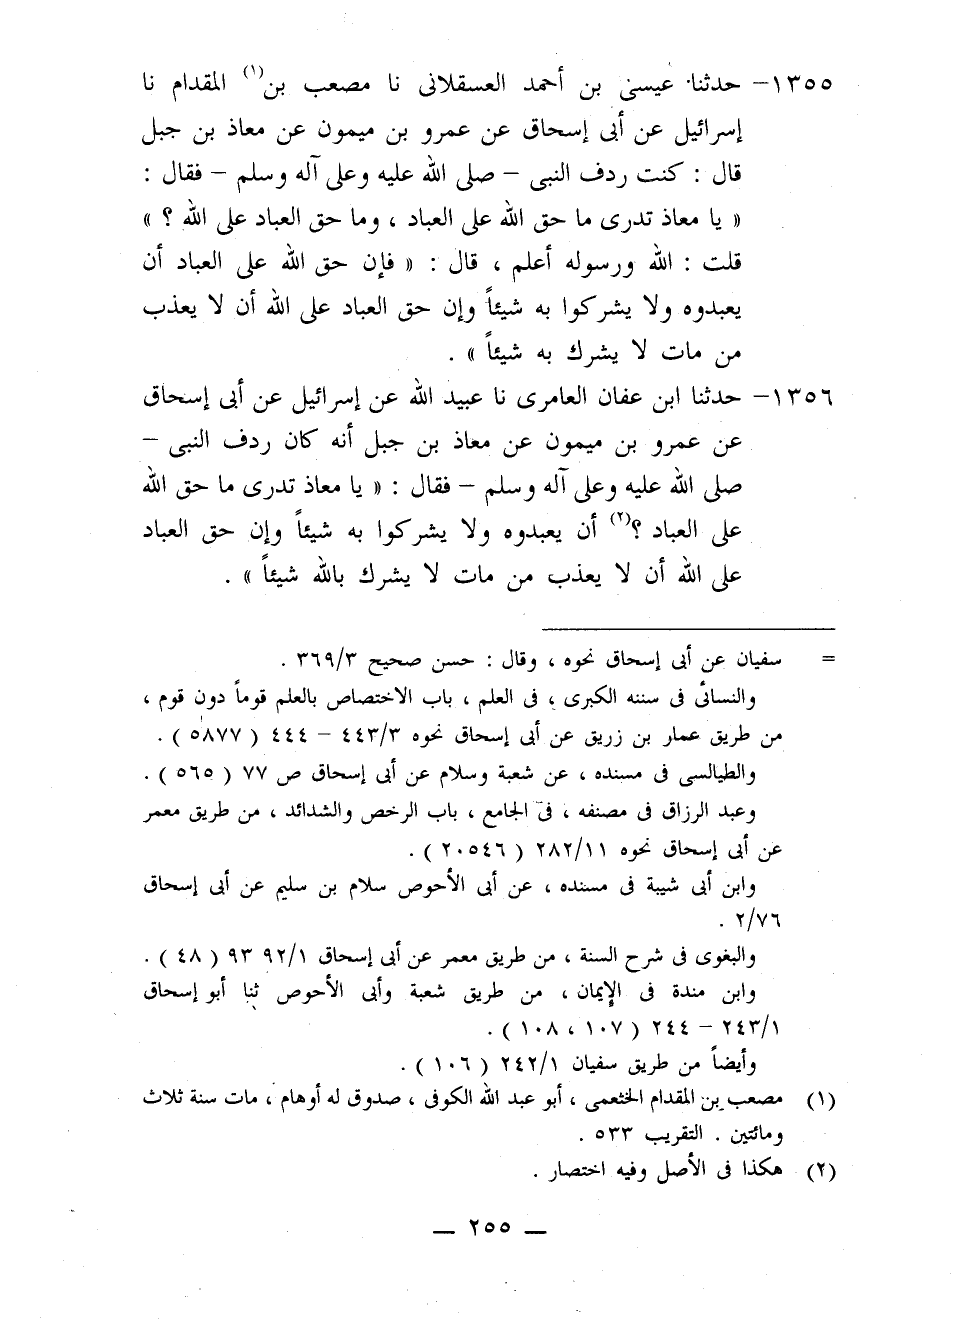 ١٣٥٥- حدثنا عيسى بن أحمد العسقلانى نا مصعب بن(١) المقدام نا
إسرائيل عن أبى إسحاق عن عمرو بن ميمون عن معاذ بن جبل
قال : كنت ردف النبى - صلى الله عليه وعلى آله وسلم - فقال :
« يا معاذ تدرى ما حق الله على العباد ، وما حق العباد على الله ؟ »
قلت : الله ورسوله أعلم ، قال : « فإن حق الله على العباد أن
يعبدوه ولا يشركوا به شيئاً وإن حق العباد على الله أن لا يعذب
من مات لا يشرك به شيئاً » .
١٣٥٦- حدثنا ابن عفان العامرى نا عبيد الله عن إسرائيل عن أبى إسحاق
عن عمرو بن ميمون عن معاذ بن جبل أنه كان ردف النبى -
صلى الله عليه وعلى آله وسلم - فقال : « يا معاذ تدرى ما حق الله
على العباد ؟(٢) أن يعبدوه ولا يشركوا به شيئاً وإن حق العباد
على الله أن لا يعذب من مات لا يشرك بالله شيئاً » .
= سفيان عن أبى إسحاق نحوه ، وقال : حسن صحيح ٣٦٩/٣ .
والنسائى فى سننه الكبرى ، فى العلم ، باب الاختصاص بالعلم قوماً دون قوم ،
من طريق عمار بن زريق عن أبى إسحاق نحوه ٤٤٣/٣ - ٤٤٤ ( ٥٨٧٧ ) .
والطيالسى فى مسنده ، عن شعبة وسلام عن أبى إسحاق ص ٧٧ ( ٥٦٥ ) .
وعبد الرزاق فى مصنفه ، فى الجامع ، باب الرخص والشدائد ، من طريق معمر
عن أبى إسحاق نحوه ٢٨٢/١١ ( ٢٠٥٤٦ ) .
وابن أبى شيبة فى مسنده ، عن أبى الأحوص سلام بن سليم عن أبى إسحاق
٢/٧٦ .
والبغوى فى شرح السنة ، من طريق معمر عن أبى إسحاق ٩٢/١ ٩٣ ( ٤٨ ) .
وابن مندة فى الإيمان ، من طريق شعبة وأبى الأحوص ثنا أبو إسحاق
٢٤٣/١ - ٢٤٤ ( ١٠٧ ، ١٠٨ ) .
وأيضاً من طريق سفيان ٢٤٢/١ ( ١٠٦ ) .
(١) مصعب بن المقدام الخثعمى ، أبو عبد الله الكوفى ، صدوق له أوهام ، مات سنة ثلاث
ومائتين . التقريب ٥٣٣ .
(٢) هكذا فى الأصل وفيه اختصار .
— ٢٥٥ —